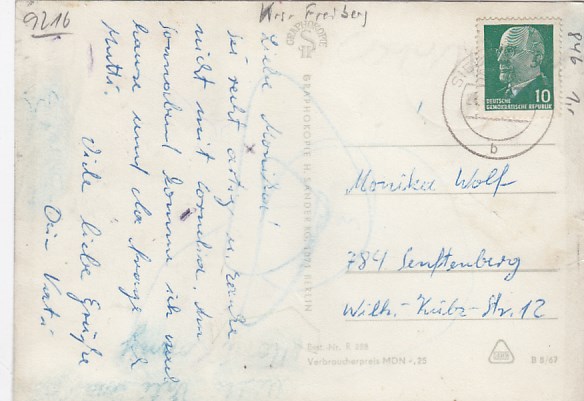 9216
Krsr Freiberg
846 1,1
Liebe Monika!
Sei recht artig u. zanke
nicht mit Cornelia. Am
Sonnabend komme ich nach
hause und da
Mutti.
Viele liebe Grüße
Dein Vati
GRAPHOKOPIE H. SANDER KG. BERLIN
DEUTSCHE
DEMOKRATISCHE REPUBLIK
10
b
Monika Wolf
784 Senftenberg
Wilh.-Külz-Str. 12
Best.-Nr. F 388
Verbraucherpreis MDN -,25
B 8/67